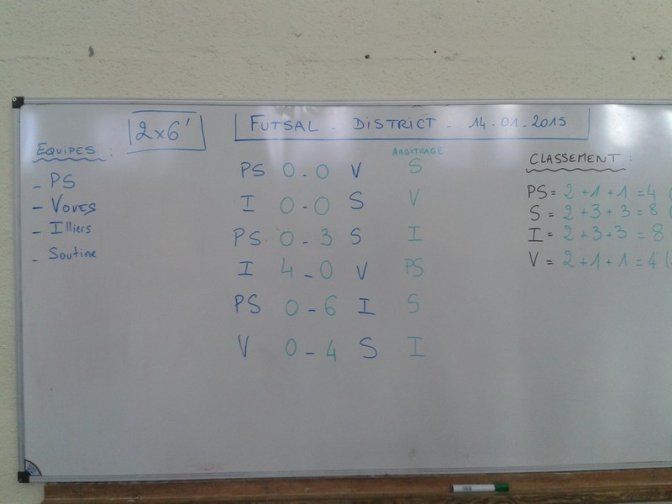 2x6'
FUTSAL - DISTRICT - 14.01.2015
EQUIPES :
- PS
- VOVES
- Illiers
- Soutine
ARBITRAGE
PS 0-0 V S
I 0-0 S V
PS 0-3 S I
I 4-0 V PS
PS 0-6 I S
V 0-4 S I
CLASSEMENT :
PS = 2+1+1=4
S = 2+3+3=8
I = 2+3+3=8
V = 2+1+1=4